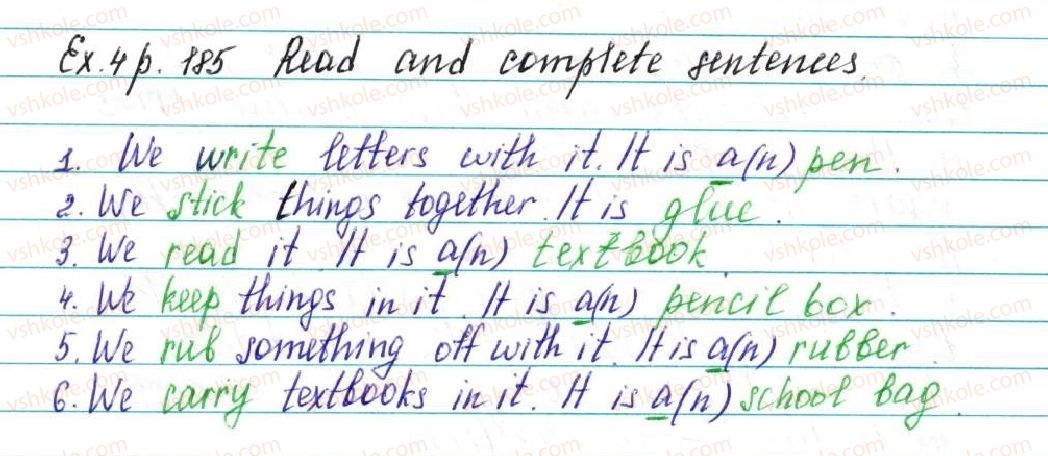 Ex. 4 p. 185 Read and complete sentences.
1. We write letters with it. It is a(n) pen.
2. We stick things together. It is glue.
3. We read it. It is a(n) textbook.
4. We keep things in it. It is a(n) pencil box.
5. We rub something off with it. It is a(n) rubber.
6. We carry textbooks in it. It is a(n) school bag.